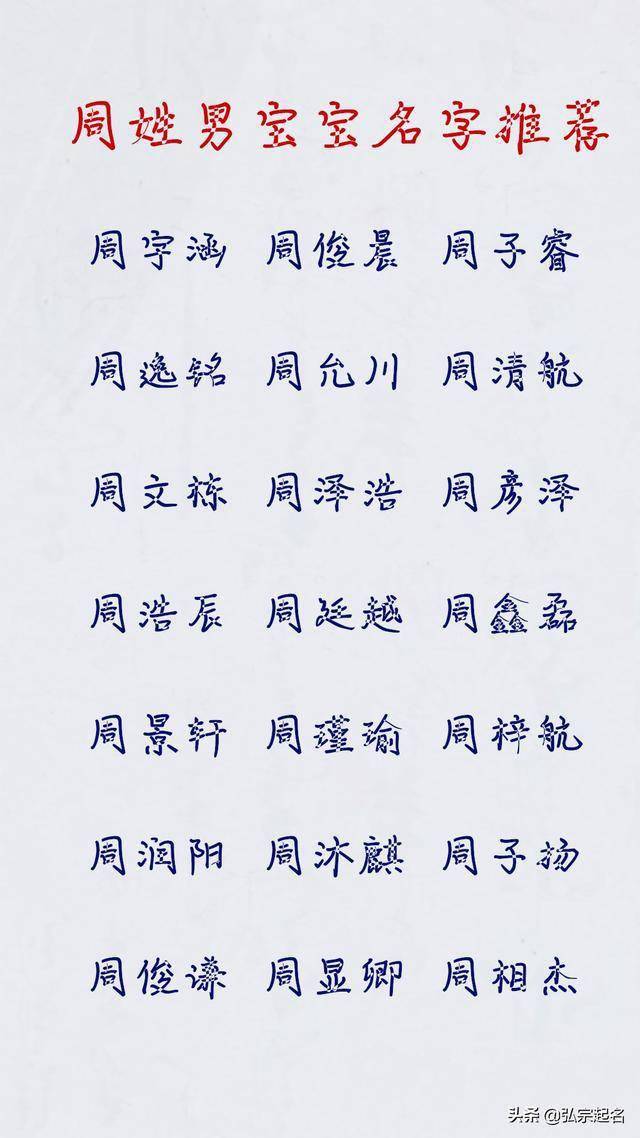 周姓男宝宝名字推荐
周宇涵 周俊晨 周子睿
周逸铭 周允川 周清航
周文栋 周泽浩 周彦泽
周浩辰 周延越 周鑫磊
周景轩 周瑾瑜 周梓航
周润阳 周沐麒 周子扬
周俊谦 周显卿 周相杰
头条 @弘宗起名